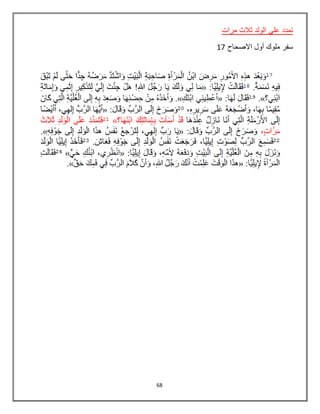 تمدد على الولد ثلاث مرات
سفر ملوك أول الاصحاح 17
17وَبَعْدَ هذِهِ الأُمُورِ مَرِضَ ابْنُ الْمَرْأَةِ صَاحِبَةِ الْبَيْتِ وَاشْتَدَّ مَرَضُهُ جِدًّا حَتَّى لَمْ تَبْقَ
فِيهِ نَسَمَةٌ. 18فَقَالَتْ لإِيلِيَّا: «مَا لِي وَلَكَ يَا رَجُلَ اللهِ! هَلْ جِئْتَ إِلَيَّ لِتَذْكِيرِ إِثْمِي وَإِمَاتَةِ
ابْنِي؟». 19فَقَالَ لَهَا: «أَعْطِينِي ابْنَكِ». وَأَخَذَهُ مِنْ حِضْنِهَا وَصَعِدَ بِهِ إِلَى الْعُلِّيَّةِ الَّتِي كَانَ
مُقِيمًا بِهَا، وَأَضْجَعَهُ عَلَى سَرِيرِهِ، 20وَصَرَخَ إِلَى الرَّبِّ وَقَالَ: «أَيُّهَا الرَّبُّ إِلهِي، أَأَيْضًا
إِلَى الأَرْمَلَةِ الَّتِي أَنَا نَازِلٌ عِنْدَهَا قَدْ أَسَأْتَ بِإِمَاتَتِكَ ابْنَهَا؟» 21فَتَمَدَّدَ عَلَى الْوَلَدِ ثَلاَثَ
مَرَّاتٍ، وَصَرَخَ إِلَى الرَّبِّ وَقَالَ: «يَا رَبُّ إِلهِي، لِتَرْجعْ نَفْسُ هذَا الْوَلَدِ إِلَى جَوْفِهِ».
22فَسَمِعَ الرَّبُّ لِصَوْتِ إِيلِيَّا، فَرَجَعَتْ نَفْسُ الْوَلَدِ إِلَى جَوْفِهِ فَعَاشَ. 23فَأَخَذَ إِيلِيَّا الْوَلَدَ
وَنَزَلَ بِهِ مِنَ الْعُلِّيَّةِ إِلَى الْبَيْتِ وَدَفَعَهُ لأُمِّهِ، وَقَالَ إِيلِيَّا: «انْظُرِي، ابْنُكِ حَيٌّ» 24فَقَالَتِ
الْمَرْأَةُ لإِيلِيَّا: «هذَا الْوَقْتَ عَلِمْتُ أَنَّكَ رَجُلُ اللهِ، وَأَنَّ كَلاَمَ الرَّبِّ فِي فَمِكَ حَقٌّ».
68